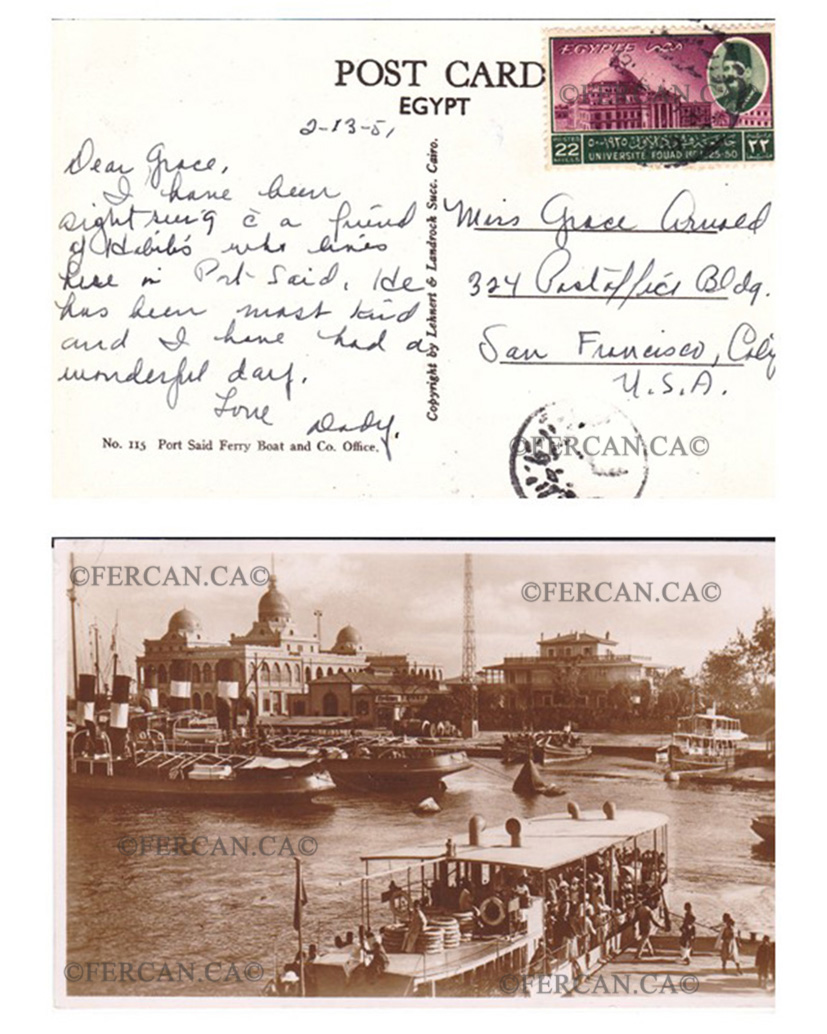 POST CARD
EGYPT
EGYPTE مصر
22
MILLS
١٩٢٥-٥٠
UNIVERSITE FOUAD Ier 1925-50
٢٢
©FERCAN.CA©
2-13-51
Dear Grace,
I have been
sightseeing c̄ a friend
of Habib's who lives
here in Port Said. He
has been most kind
and I have had a
wonderful day.
Love
Dady.
No. 115 Port Said Ferry Boat and Co. Office.
Copyright by Lehnert & Landrock Succ. Cairo.
Miss Grace Arnold
324 Postoffice Bldg.
San Francisco, Calif
U.S.A.
©FERCAN.CA©
©FERCAN.CA©
©FERCAN.CA©
©FERCAN.CA©
©FERCAN.CA©
©FERCAN.CA©